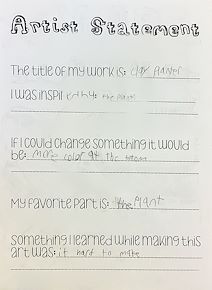 Artist Statement
The title of my work is: clay planter
I was inspired by: the plants
If I could change something it would
be: more color at the bottom
My favorite part is: the plant
Something I learned while making this
art was: it hard to make